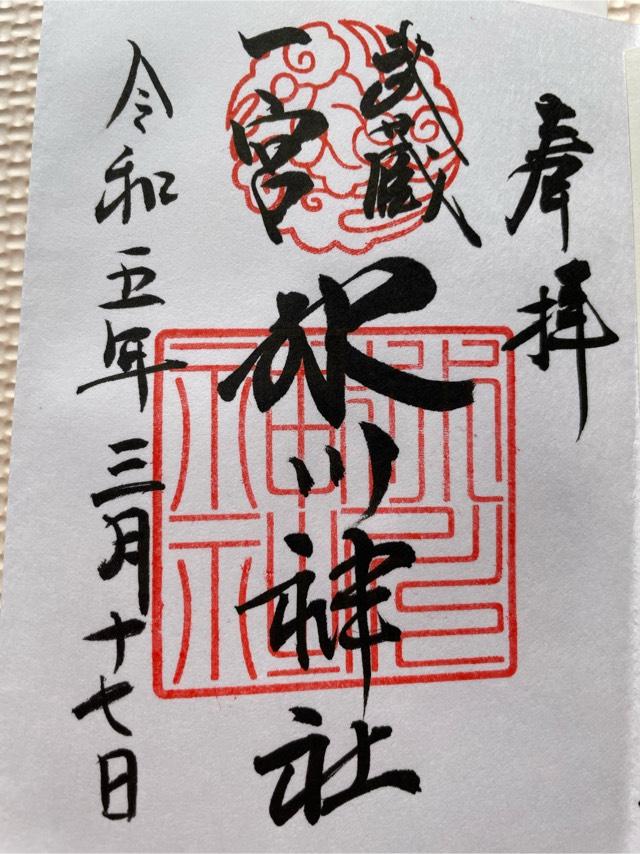 奉拝
武蔵
一宮
氷川神社
令和五年三月十七日